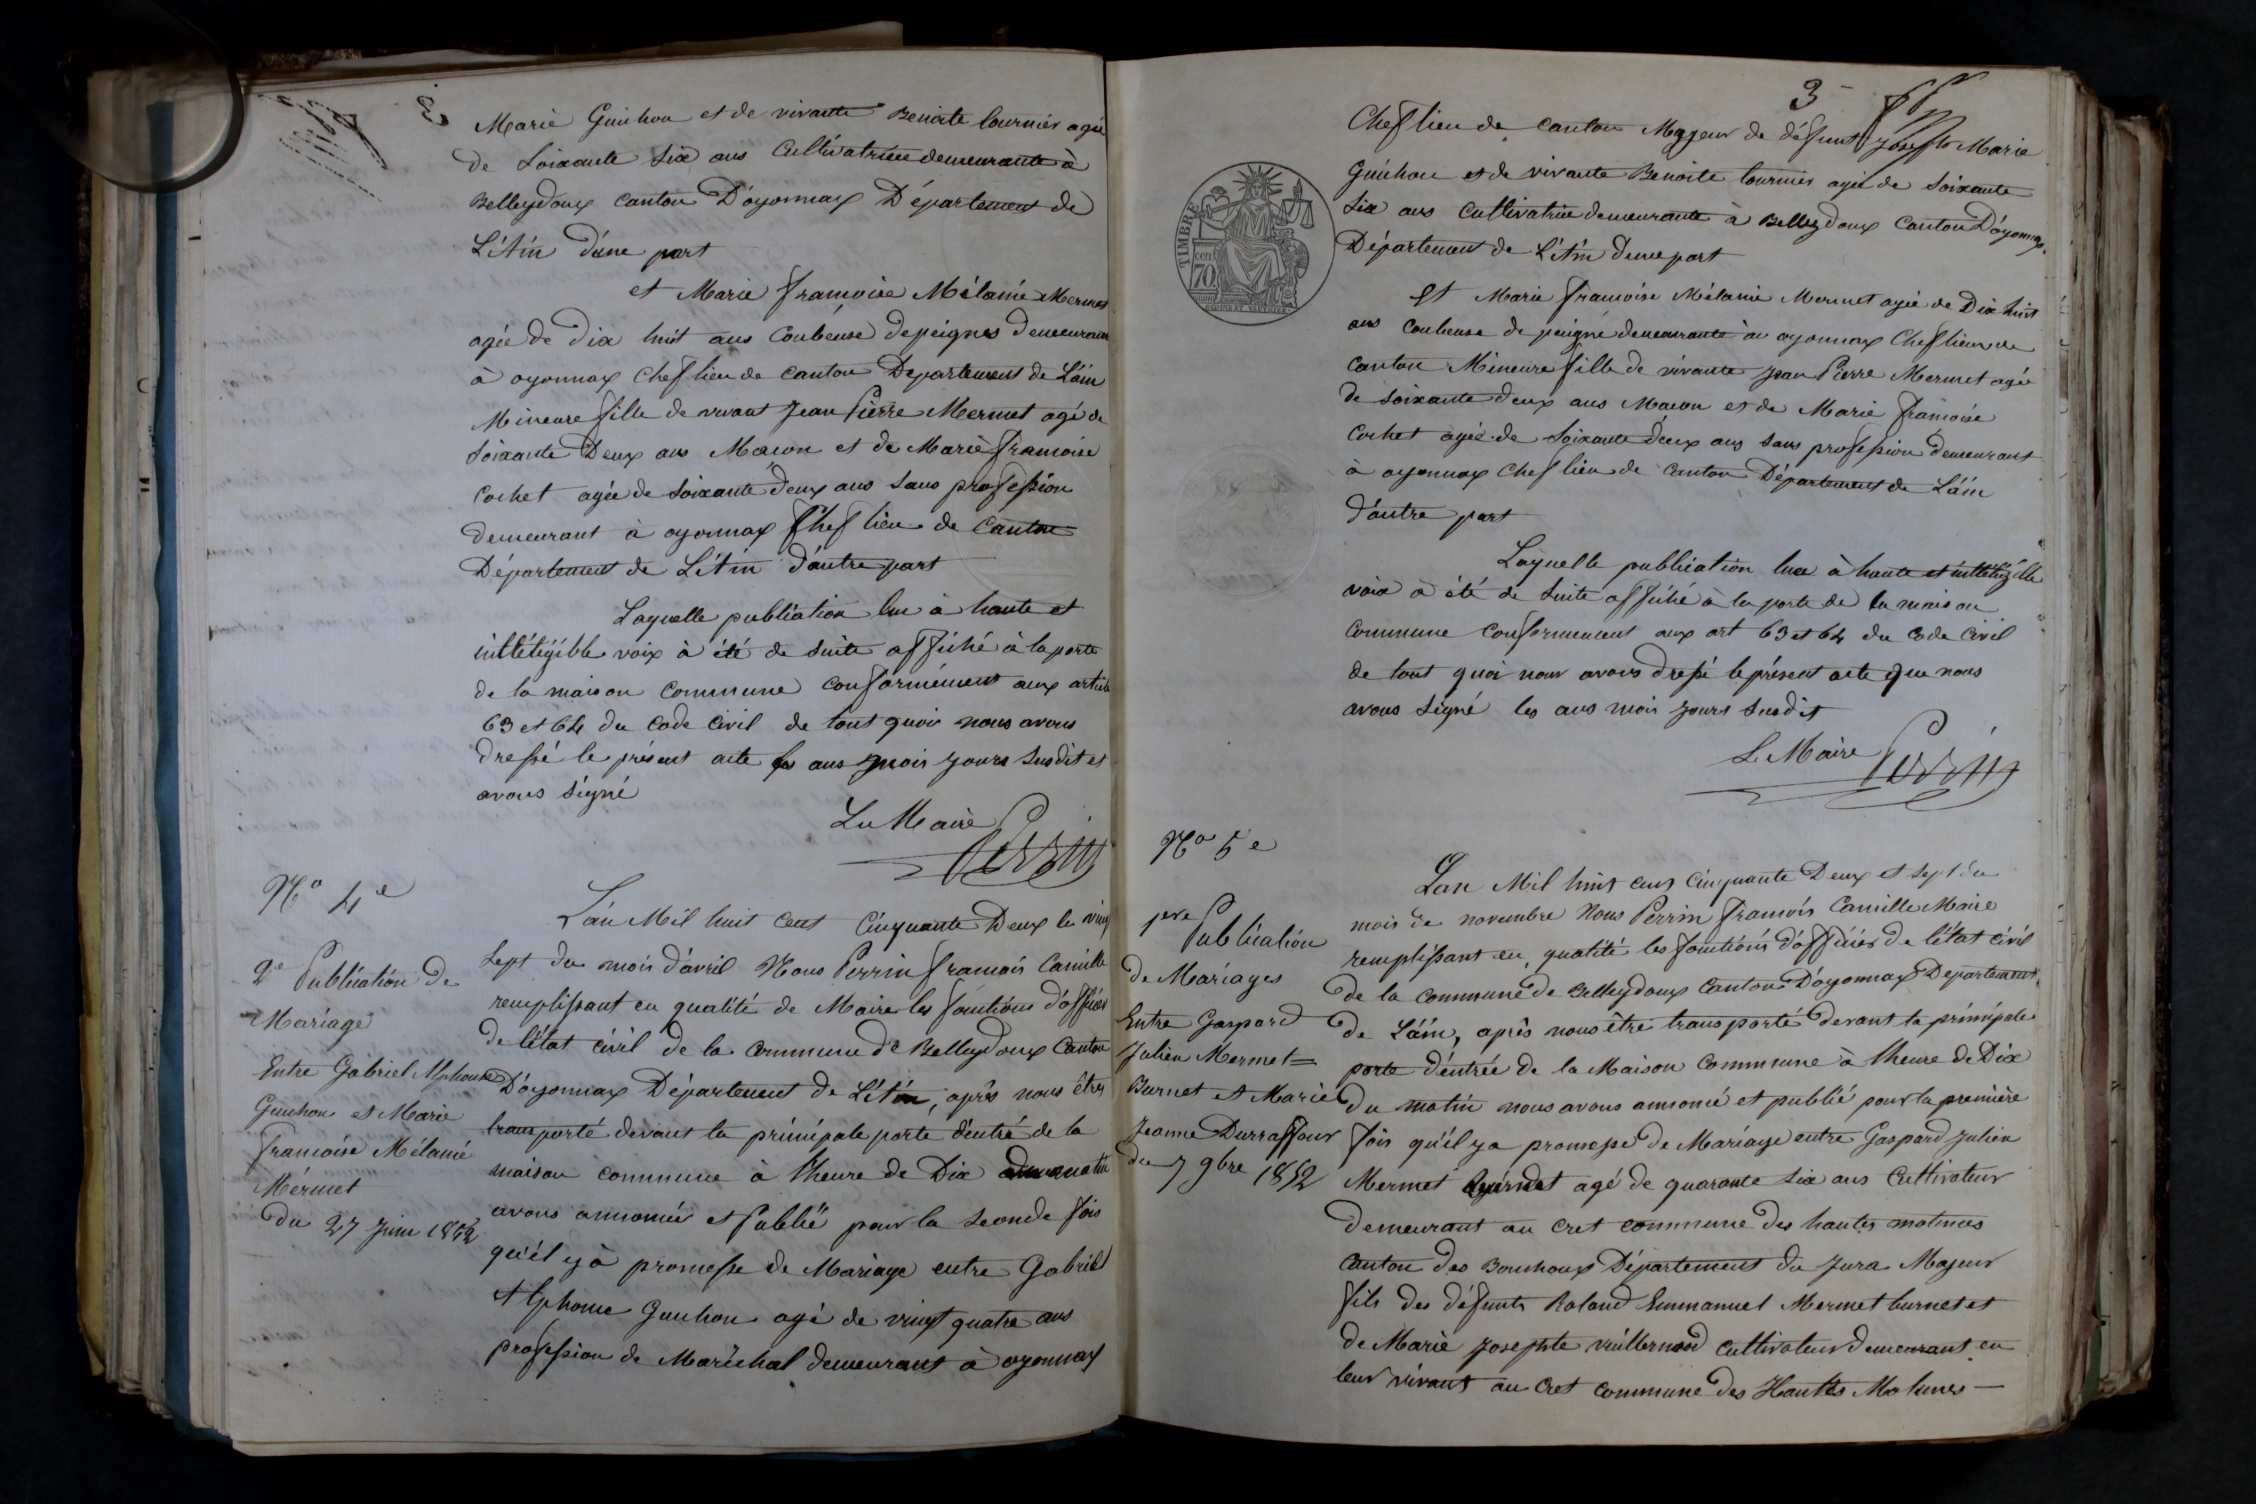 2
Marie Guichon et de vivante Benoite tournier agée
de Soixante Six ans Cultivatrice demeurante à
Belleydoux canton D'oyonnax Département de
L'Ain d'une part
et Marie francoise Mélanie Mermet
agée de Dix huit ans Coubeuse de peignes demeurant
à oyonnax chef lieu de canton Departement de L'ain
Mineure fille de vivant Jean Pierre Mermet agé de
soixante Deux ans Macon et de Marie francoise
Cochet agée de Soixante deux ans Sans profession
demeurant à oyonnax Chef lieu de Canton
Département de L'Ain d'autre part
Laquelle publication lue à haute et
intélégible voix à été de suite affiché à la porte
de la maison Commune Conformément aux article
63 et 64 du Code Civil de tout quoi nous avons
dressé le présent acte les ans mois jours susdit et
avons Signé
Le Maire
Perrin
No 4e
2e Publication de
Mariage
Entre Gabriel Alphonse
Guichon et Marie
francoise Mélanie
Mérmet
du 27 Juin 1852
L'an Mil huit cent Cinquante Deux le vingt
Sept du mois d'avril Nous Perrin francois Camille
remplissant en qualité de Maire les fonctions d'officier
de l'état civil de la commune de Belleydoux Canton
D'oyonnax Département de L'Ain, après nous être
transporté devant la principale porte d'entré de la
maison commune à l'heure de Dix du matin
avons annoncée et Publié pour la Seconde fois
qu'il y à promesse de Mariage entre Gabriel
Alphonse Guichon agé de vingt quatre ans
profession de Maréchal demeurant à oyonnax
3
Chef lieu de canton Mageur de défunt Joseph Marie
Guichon et de vivante Benoite tournier agée de Soixante
Six ans Cultivatrice demeurante à Belleydoux Canton D'oyonnax
Département de L'Ain d'une part
TIMBRE
cen
70
Et Marie francoise Mélanie Mermet agée de Dix huit
ans Coubeuse de peigne demeurante à oyonnax Chef lieu de
canton Mineure fille de vivante Jean Pierre Mermet agée
de soixante deux ans Macon et de Marie francoise
Cochet agée de Soixante deux ans Sans profession demeurant
à oyonnax chef lieu de Canton Département de L'ain
d'autre part
Laquelle publication lue à haute et intélégible
voix à été de suite affiché à la porte de la maison
Commune Conformement aux art 63 et 64 du Code Civil
de tout quoi nous avons dressé le présent acte que nous
avons Signé les ans mois jours susdit
Le Maire
Perrin
No 5e
1ere Publication
de Mariages
Entre Gaspard
Julien Mermet=
Burnet et Marie
Jeanne Durraffour
du 7 9bre 1852
L'an Mil huit cent cinquante Deux et sept du
mois de novembre Nous Perrin francois Camille Maire
remplissant en qualité les fonctions d'officier de l'état civil
de la commune de Belleydoux Canton D'oyonnax Departement
de L'ain, après nous être transporté devant la principale
porte d'entrée de la Maison commune à l'heure de Dix
Du matin nous avons annoncé et publié pour la première
fois qu'il y a promesse de Mariage entre Gaspard Julien
Mermet Burnet agé de quarante Six ans Cultivateur
demeurant au Cret commune des hautes molunes
Canton des Bouchoux Département du Jura Majeur
fils des défunts Roland Emmanuel Mermet burnet et
de Marie Josephte vuillermoz Cultivateur demeurant en
leur vivant au Cret commune des Hautes Molunes —